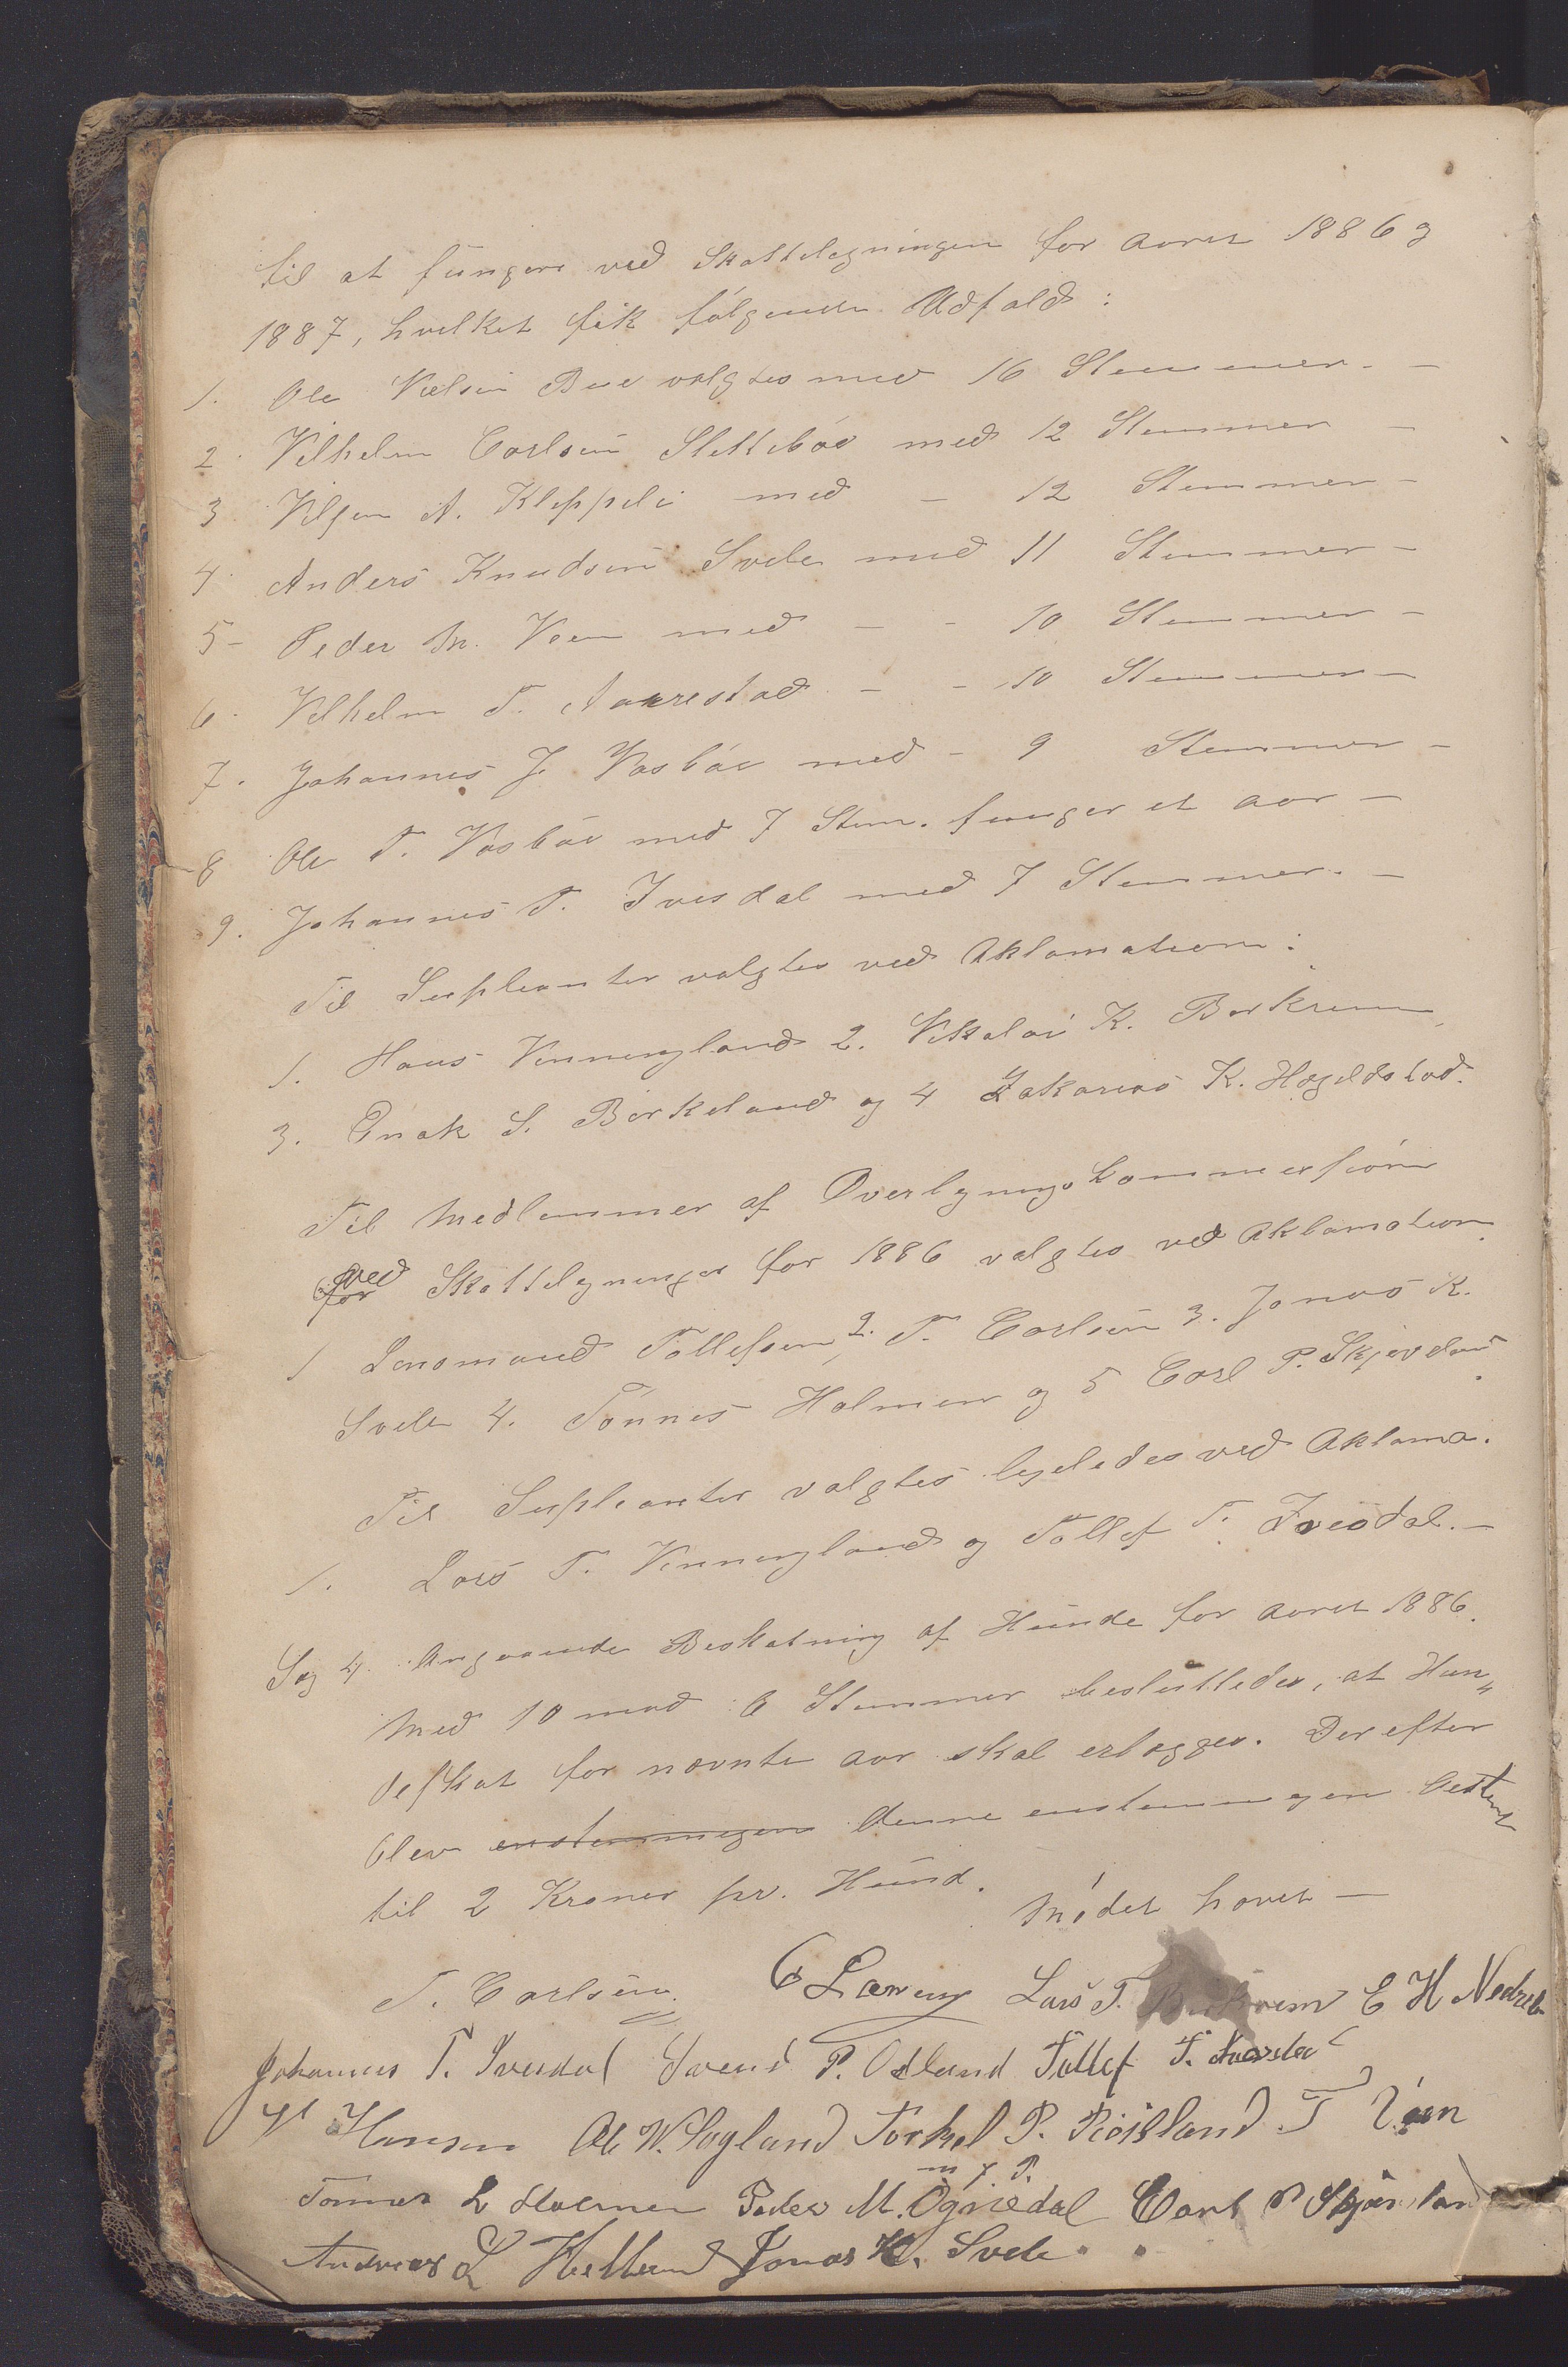 til at fungere ved Skattelegningen for Aaret 1886 og
1887, hvilket fik følgende Udfald:
1. Ole Nielsen Bue valgtes med 16 Stemmer. –
2. Vilhelm Carlsen Slettebøe med 12 Stemmer –
3 A. Kleppeli med – 12 Stemmer –
4. Anders Knudsen Svele med 11 Stemmer –
5– Peder M. Veen med – - 10 Stemmer –
6. Vilhelm T. Aarrestad – - 10 Stemmer –
7. Johannes J. Vasbøe med - 9 Stemmer –
8 Ole T. Vasbøe med 7 Stem. funger et Aar –
9. Johannes T. Ivesdal med 7 Stemmer. –
Til Supleanter valgtes ved Aklamation:
1. Hans Vinningland 2. Nikolai K. Berkrem
3. Enok S. Birkeland og 4 Zakarias K. Hegelstad.
Til Medlemmer af Overlignings Kommissionen
ved Skattelegningen for 1886 valgtes ved Aklamation.
1 Lensmand Tollefsen, 2. T. Carlsen 3. Jonas K.
Svele 4. Tønnes Holmen og 5 Carl P. Skjevland.
Til Supleanter valgtes ligeledes ved Aklama.
1. Lars T. Vinningland og Tollef T. Ivesdal. –
Sag 4. Angaaende Beskatning af Hunde for Aaret 1886.
Med 10 mod 6 Stemmer besluttedes, at Hun„
deskat for nævnte Aar skal erlægges. Derefter
blev enstemmigen denne enstemmigen bestemt
til 2 Kroner pr. Hund.
Mødet hævet –
T. Carlsen. Lars T. Birkrem E H Nedreb
Johannes T. Ivesdal Svend P. Ødland Tollef T. Aarestad
Hansen Ole W. Søyland Torkel P. Røisland T Veen
m f P.
Tønnes L Holmen Peder M. Øgnedal Carl P Skjævland
Andreas L Helland Jonas K. Svele.